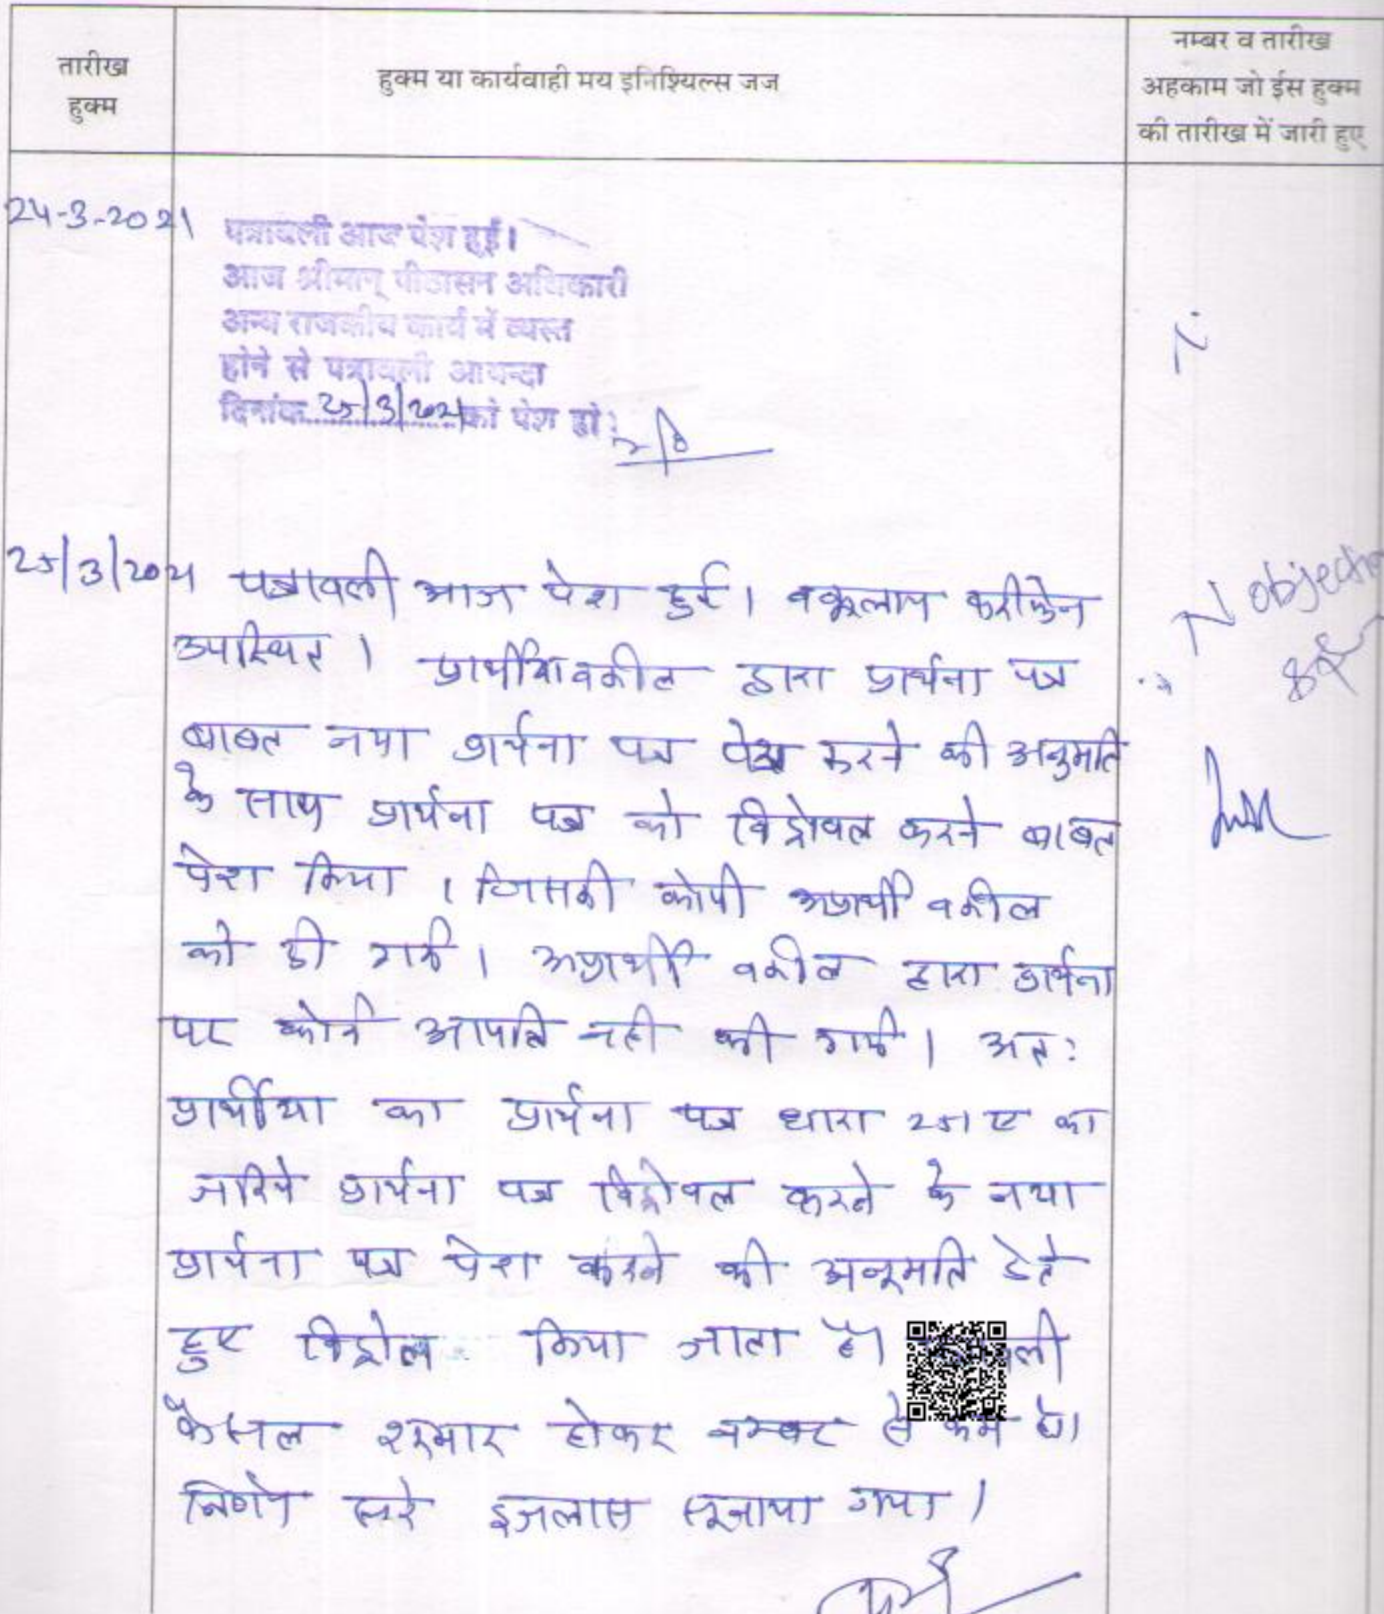 तारीख
हुक्म
हुक्म या कार्यवाही मय इनिश्यिल्स जज
नम्बर व तारीख
अहकाम जो ईस हुक्म
की तारीख में जारी हुए
24-3-2021
पत्रावली आज पेश हुई।
आज श्रीमान् पीठासन अधिकारी
अन्य राजकीय कार्य में व्यस्त
होने से पत्रावली आयन्दा
दिनांक 25/3/2021 को पेश हो।
25/3/2021 पत्रावली आज पेश हुई। वकूलाय फरीकेन
उपस्थित। प्रार्थीया वकील द्वारा प्रार्थना पत्र
बाबत नया प्रार्थना पत्र पेश करने की अनुमति
के साथ प्रार्थना पत्र को विड्रोवल करने बाबत
पेश किया। जिसकी कोपी अप्रार्थी वकील
को दी गई। अप्रार्थी वकील द्वारा प्रार्थना
पर कोई आपति नही की गई। अत:
प्रार्थीया का प्रार्थना पत्र धारा 251 ए का
जरिये प्रार्थना पत्र विड्रोवल करने के नया
प्रार्थना पत्र पेश करने की अनूमति देते
हुए विड्रोल किया जाता है। वली
फैसल शूमार होकर नम्बर से कम हो।
निर्णय सरे इजलास सूनाया गया।
N objection